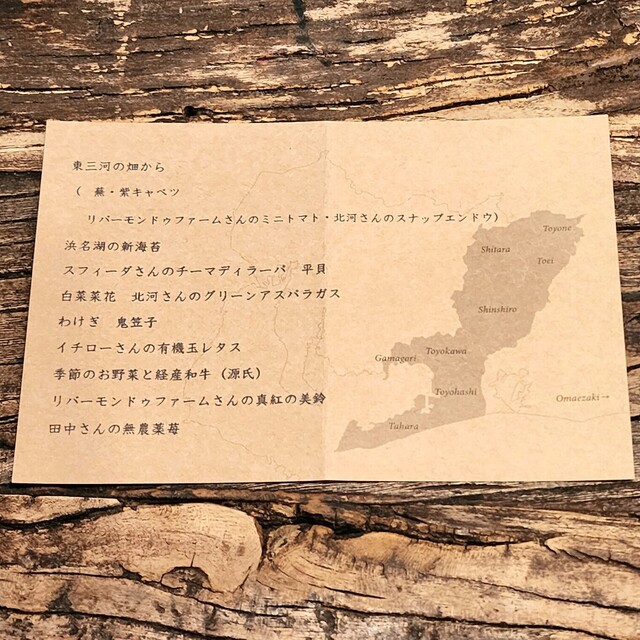 東三河の畑から
（ 蕪・紫キャベツ
リバーモンドゥファームさんのミニトマト・北河さんのスナップエンドウ）
浜名湖の新海苔
スフィーダさんのチーマディラーパ　平貝
白菜菜花　北河さんのグリーンアスパラガス
わけぎ　鬼笠子
イチローさんの有機玉レタス
季節のお野菜と経産和牛（源氏）
リバーモンドゥファームさんの真紅の美鈴
田中さんの無農薬苺
Toyone
Shitara
Toei
Shinshiro
Gamagori
Toyokawa
Toyohashi
Omaezaki→
Tahara